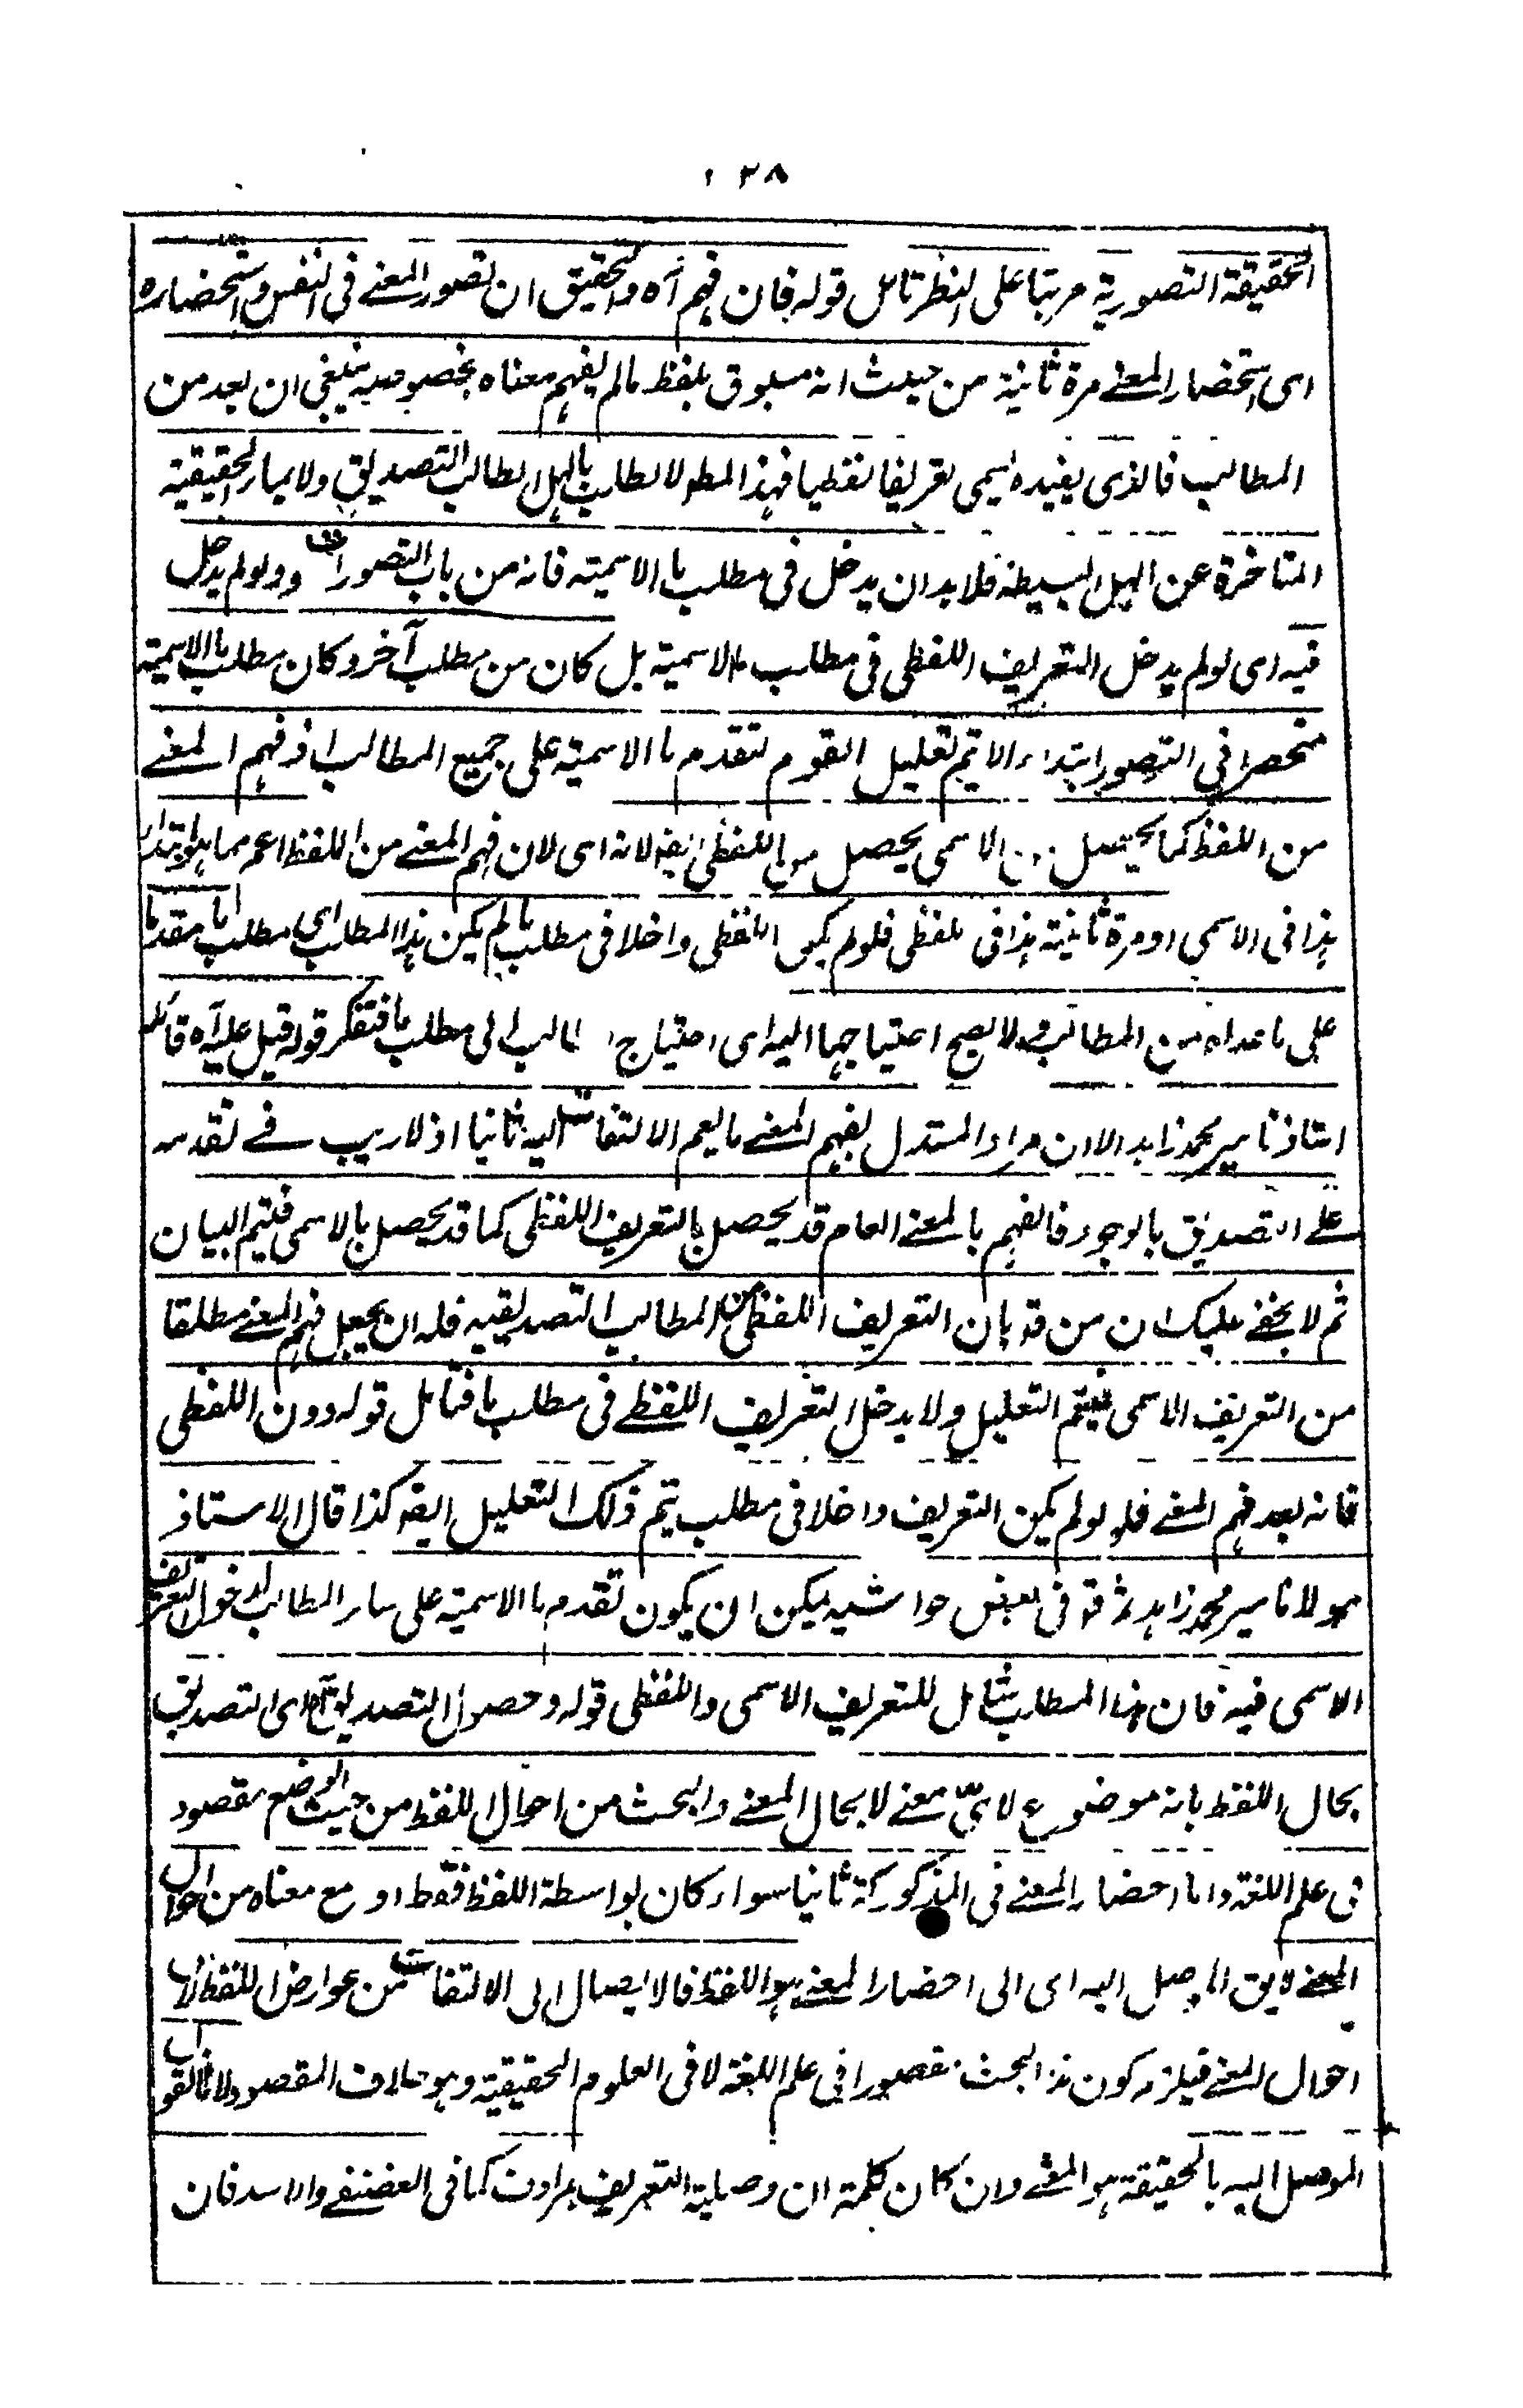 ١٣٨
الحقيقة التصورية مرتبا على النظر تامل قوله فان فهم آه والتحقيق ان تصور المعنے فى النفس واستحضاره
اى استحضار المعنے مرة ثانية من حيث انه مسبوق بلفظ مالم يفهم معناه بخصوصه ينبغى ان يعد من
المطالب فالذى يفيده يسمى تعريفا لفظيا فهذا المط لا لطالب بالهل لطالب التصديق ولا بما الحقيقية
المتاخرة عن الهل البسيطة فلا بد ان يدخل فى مطلب ما الاسمية فانه من باب التصورات وولو لم يدخل
فيه اى لو لم يدخل التعريف اللفظى فى مطلب ما الاسمية بل كان من مطلب آخر وكان مطلب ما الاسمية
منحصرا فى التصور ابتداء الاتم تعليل القوم لتقدم ما الاسمية على جميع المطالب اذ فهم المعنے
من اللفظ كما يحصل الاسمى يحصل من اللفظى ايضا لانه اى لان فهم المعنے من اللفظ اعم مما هو ابتداء
هذا فى الاسمى او مرة ثانية هذا فى اللفظى فلو لم يكن اللفظى داخلا فى مطلب ما لم يكن هذا المطلب اى مطلب ما مقدما
على ما عداه من المطالب ولا يصح احتياجها اليه اى احتياج المطالب الى مطلب ما فتفكر قوله قيل عليه آه قائله
استاذنا مير محمد زاهد الا ان مراد المستدل بفهم المعنے ما يعم الالتفات اليه ثانيا اذ لا ريب فے تقدمه
علے التصديق بالوجود فالفهم بالمعنے العام قد يحصل بالتعريف اللفظى كما قد يحصل بالاسمى فيتم البيان
ثم لا يخفے عليك ان من قال بان التعريف اللفظى من المطالب التصديقية فله ان يجعل فهم المعنے مطلقا
من التعريف الاسمى فيتم التعليل ولا يدخل التعريف اللفظے فى مطلب ما فتامل قوله دون اللفظى
فانه بعد فهم المعنے فلو لم يكن التعريف داخلا فى مطلب يتم ذلك التعليل ايضا كذا قال الاستاذ
مولانا مير محمد زاهد فى بعض حواشيه يمكن ان يكون تقدم ما الاسمية على سائر المطالب لدخول التعريف
الاسمى فيه فان هذا المطلب شامل للتعريف الاسمى واللفظى قوله وحصول التصديق آه اى التصديق
بحال اللفظ بانه موضوع لاىّ معنے لا بحال المعنے والبحث من احوال اللفظ من حيث الوضع مقصود
فى علم اللغة واما احضار المعنے فى المذكور كة ثانيا سواء كان بواسطة اللفظ فقط او مع معناه من احوال
المعنے لايق الموصل اليه اى الى احضار المعنے هو اللفظ فالايصال الى الالتفات من عوارض اللفظ لا من
احوال المعنے فيلزم كون هذا البحث مقصورا فى علم اللغة لا فى العلوم الحقيقية وهو خلاف المقصود لانا نقول
الموصل اليه بالحقيقة هو المعنے وان كان كلمة ان وصلية التعريف بمرادف كما فى الغضنفر والاسد فان